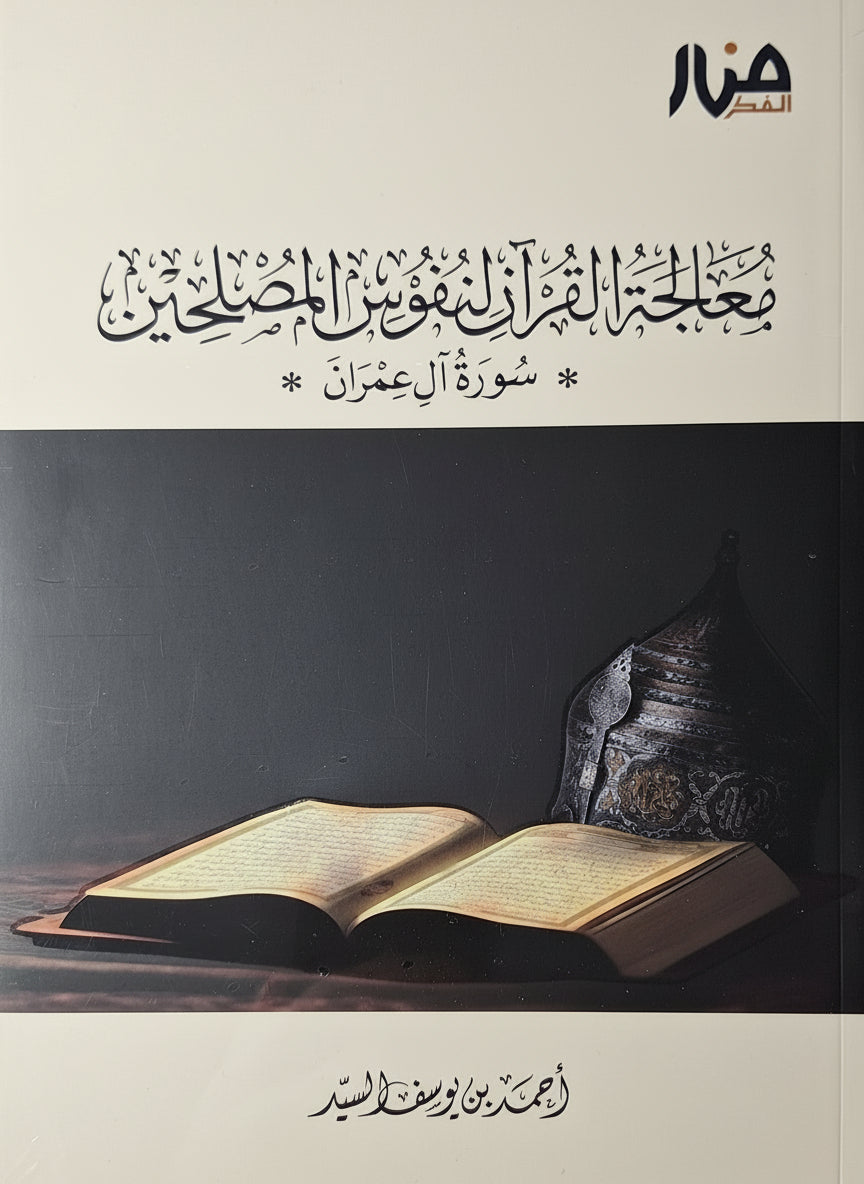 منار
الفكر
مُعَالَجَةُ القُرْآنِ لِنُفُوْسِ المُصْلِحِيْن
* سُورَةُ آلِ عِمْرَانَ *
أحمَد بن يوسف السيّد